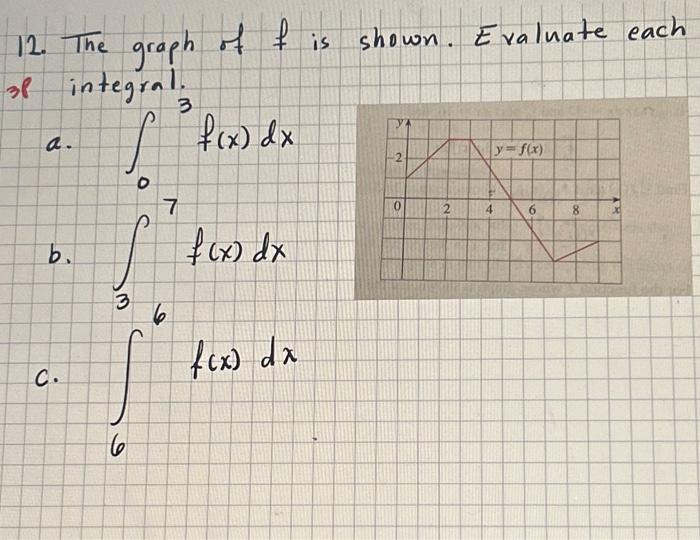 12. The graph of f is shown. Evaluate each
3P integral.
a. ∫₀³ f(x) dx
b. ∫₃⁷ f(x) dx
c. ∫₆⁶ f(x) dx
y
2
y = f(x)
0 2 4 6 8 x